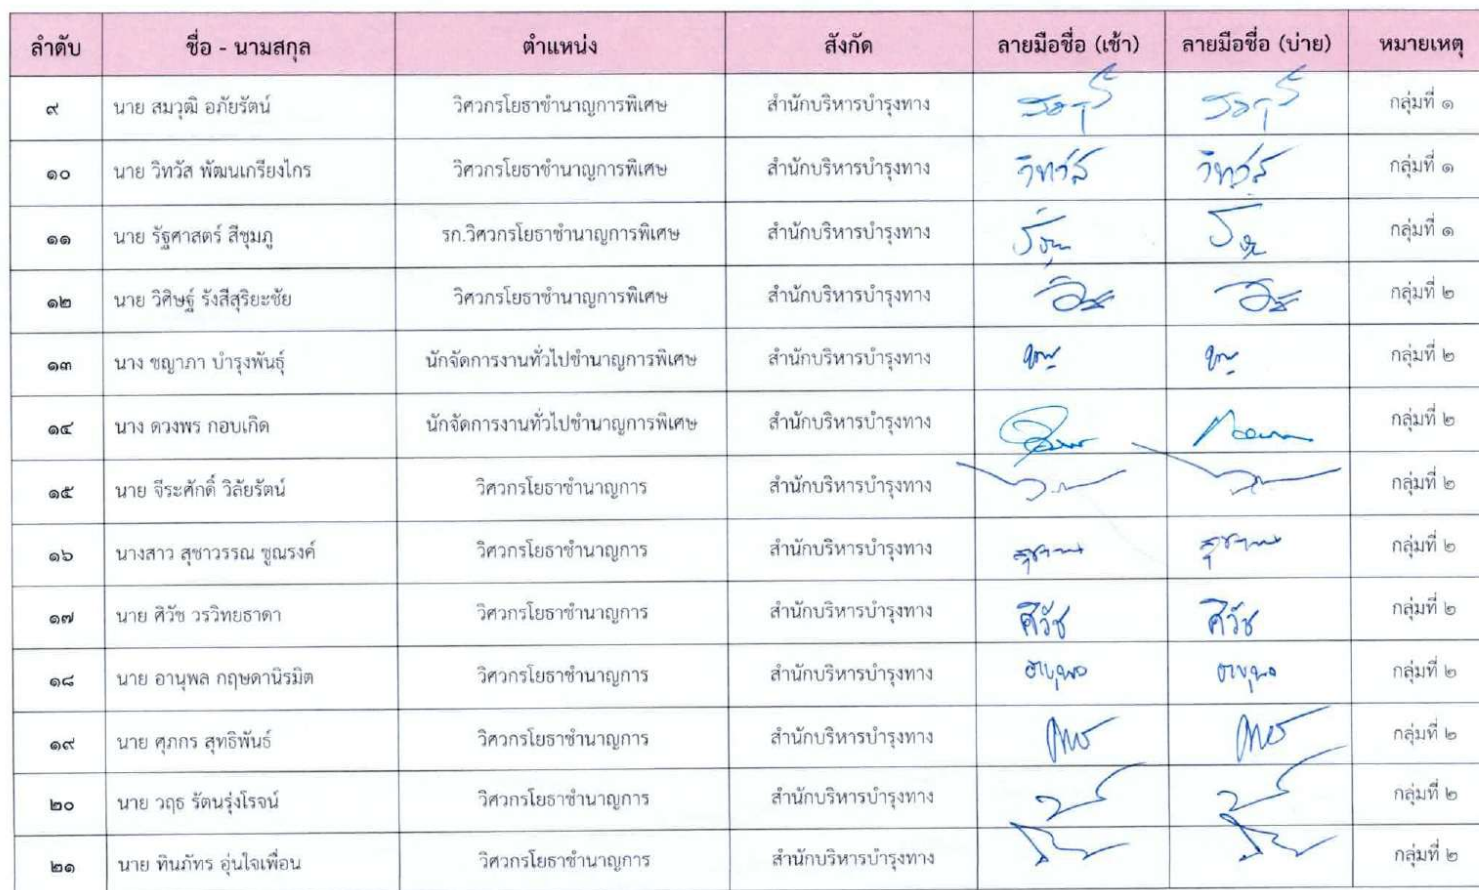 ลำดับ ชื่อ - นามสกุล ตำแหน่ง สังกัด ลายมือชื่อ (เช้า) ลายมือชื่อ (บ่าย) หมายเหตุ
๙ นาย สมวุฒิ อภัยรัตน์ วิศวกรโยธาชำนาญการพิเศษ สำนักบริหารบำรุงทาง กลุ่มที่ ๑
๑๐ นาย วิทวัส พัฒนเกรียงไกร วิศวกรโยธาชำนาญการพิเศษ สำนักบริหารบำรุงทาง วิทวัส วิทวัส กลุ่มที่ ๑
๑๑ นาย รัฐศาสตร์ สีชุมภู รก.วิศวกรโยธาชำนาญการพิเศษ สำนักบริหารบำรุงทาง กลุ่มที่ ๑
๑๒ นาย วิศิษฐ์ รังสีสุริยะชัย วิศวกรโยธาชำนาญการพิเศษ สำนักบริหารบำรุงทาง กลุ่มที่ ๒
๑๓ นาง ชญาภา บำรุงพันธุ์ นักจัดการงานทั่วไปชำนาญการพิเศษ สำนักบริหารบำรุงทาง กลุ่มที่ ๒
๑๔ นาง ดวงพร กอบเกิด นักจัดการงานทั่วไปชำนาญการพิเศษ สำนักบริหารบำรุงทาง กลุ่มที่ ๒
๑๕ นาย จีระศักดิ์ วิลัยรัตน์ วิศวกรโยธาชำนาญการ สำนักบริหารบำรุงทาง กลุ่มที่ ๒
๑๖ นางสาว สุชาวรรณ ชูณรงค์ วิศวกรโยธาชำนาญการ สำนักบริหารบำรุงทาง กลุ่มที่ ๒
๑๗ นาย ศิวัช วรวิทยธาดา วิศวกรโยธาชำนาญการ สำนักบริหารบำรุงทาง ศิวัช ศิวัช กลุ่มที่ ๒
๑๘ นาย อานุพล กฤษดานิรมิต วิศวกรโยธาชำนาญการ สำนักบริหารบำรุงทาง อานุพล อานุพล กลุ่มที่ ๒
๑๙ นาย ศุภกร สุทธิพันธ์ วิศวกรโยธาชำนาญการ สำนักบริหารบำรุงทาง กลุ่มที่ ๒
๒๐ นาย วฤธ รัตนรุ่งโรจน์ วิศวกรโยธาชำนาญการ สำนักบริหารบำรุงทาง กลุ่มที่ ๒
๒๑ นาย ทินภัทร อุ่นใจเพื่อน วิศวกรโยธาชำนาญการ สำนักบริหารบำรุงทาง กลุ่มที่ ๒